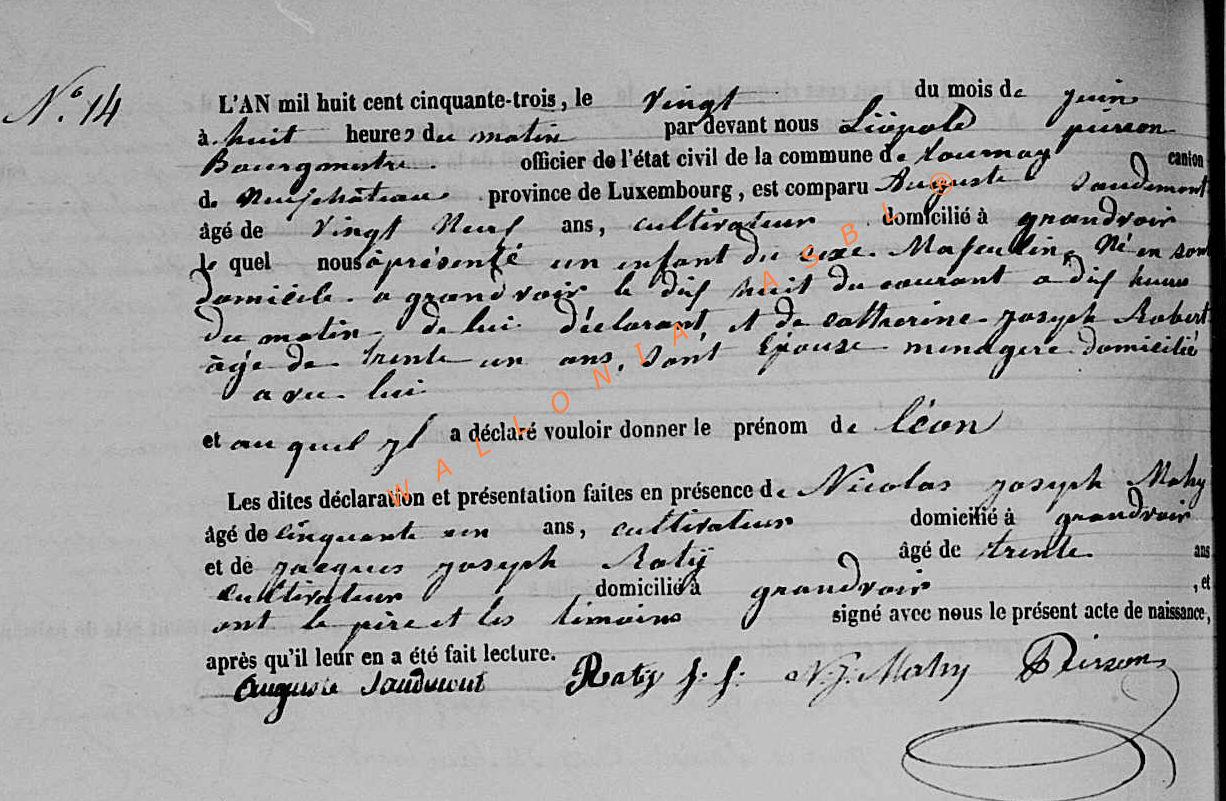 N.º 14
L'AN mil huit cent cinquante-trois, le vingt du mois de juin
à huit heures du matin par devant nous Léopold pierson
Bourgmestre officier de l'état civil de la commune de tournay canton
de Neufchâteau province de Luxembourg, est comparu Auguste
âgé de vingt Neuf ans, cultivateur domicilié à grandvoir
le quel nous à présenté un enfant du sexe Masculin, Né en son
domicile a grandvoir le dix huit du courant a dix heures
du matin de lui déclarant, et de catherine joseph Robert
âgé de trente un ans, son épouse menagere domicilié
avec lui
et au quel il a déclaré vouloir donner le prénom de léon
Les dites déclaration et présentation faites en présence de Nicolas joseph Mahy
âgé de cinquante un ans, cultivateur domicilié à grandvoir
et de jacques joseph Ratij âgé de trente ans
cultivateur domicilié à grandvoir, et
ont le père et les témoins signé avec nous le présent acte de naissance,
après qu'il leur en a été fait lecture.
Auguste Ratij J. J. N. J. Mahy Pierson
WALLONIA ASBL ®